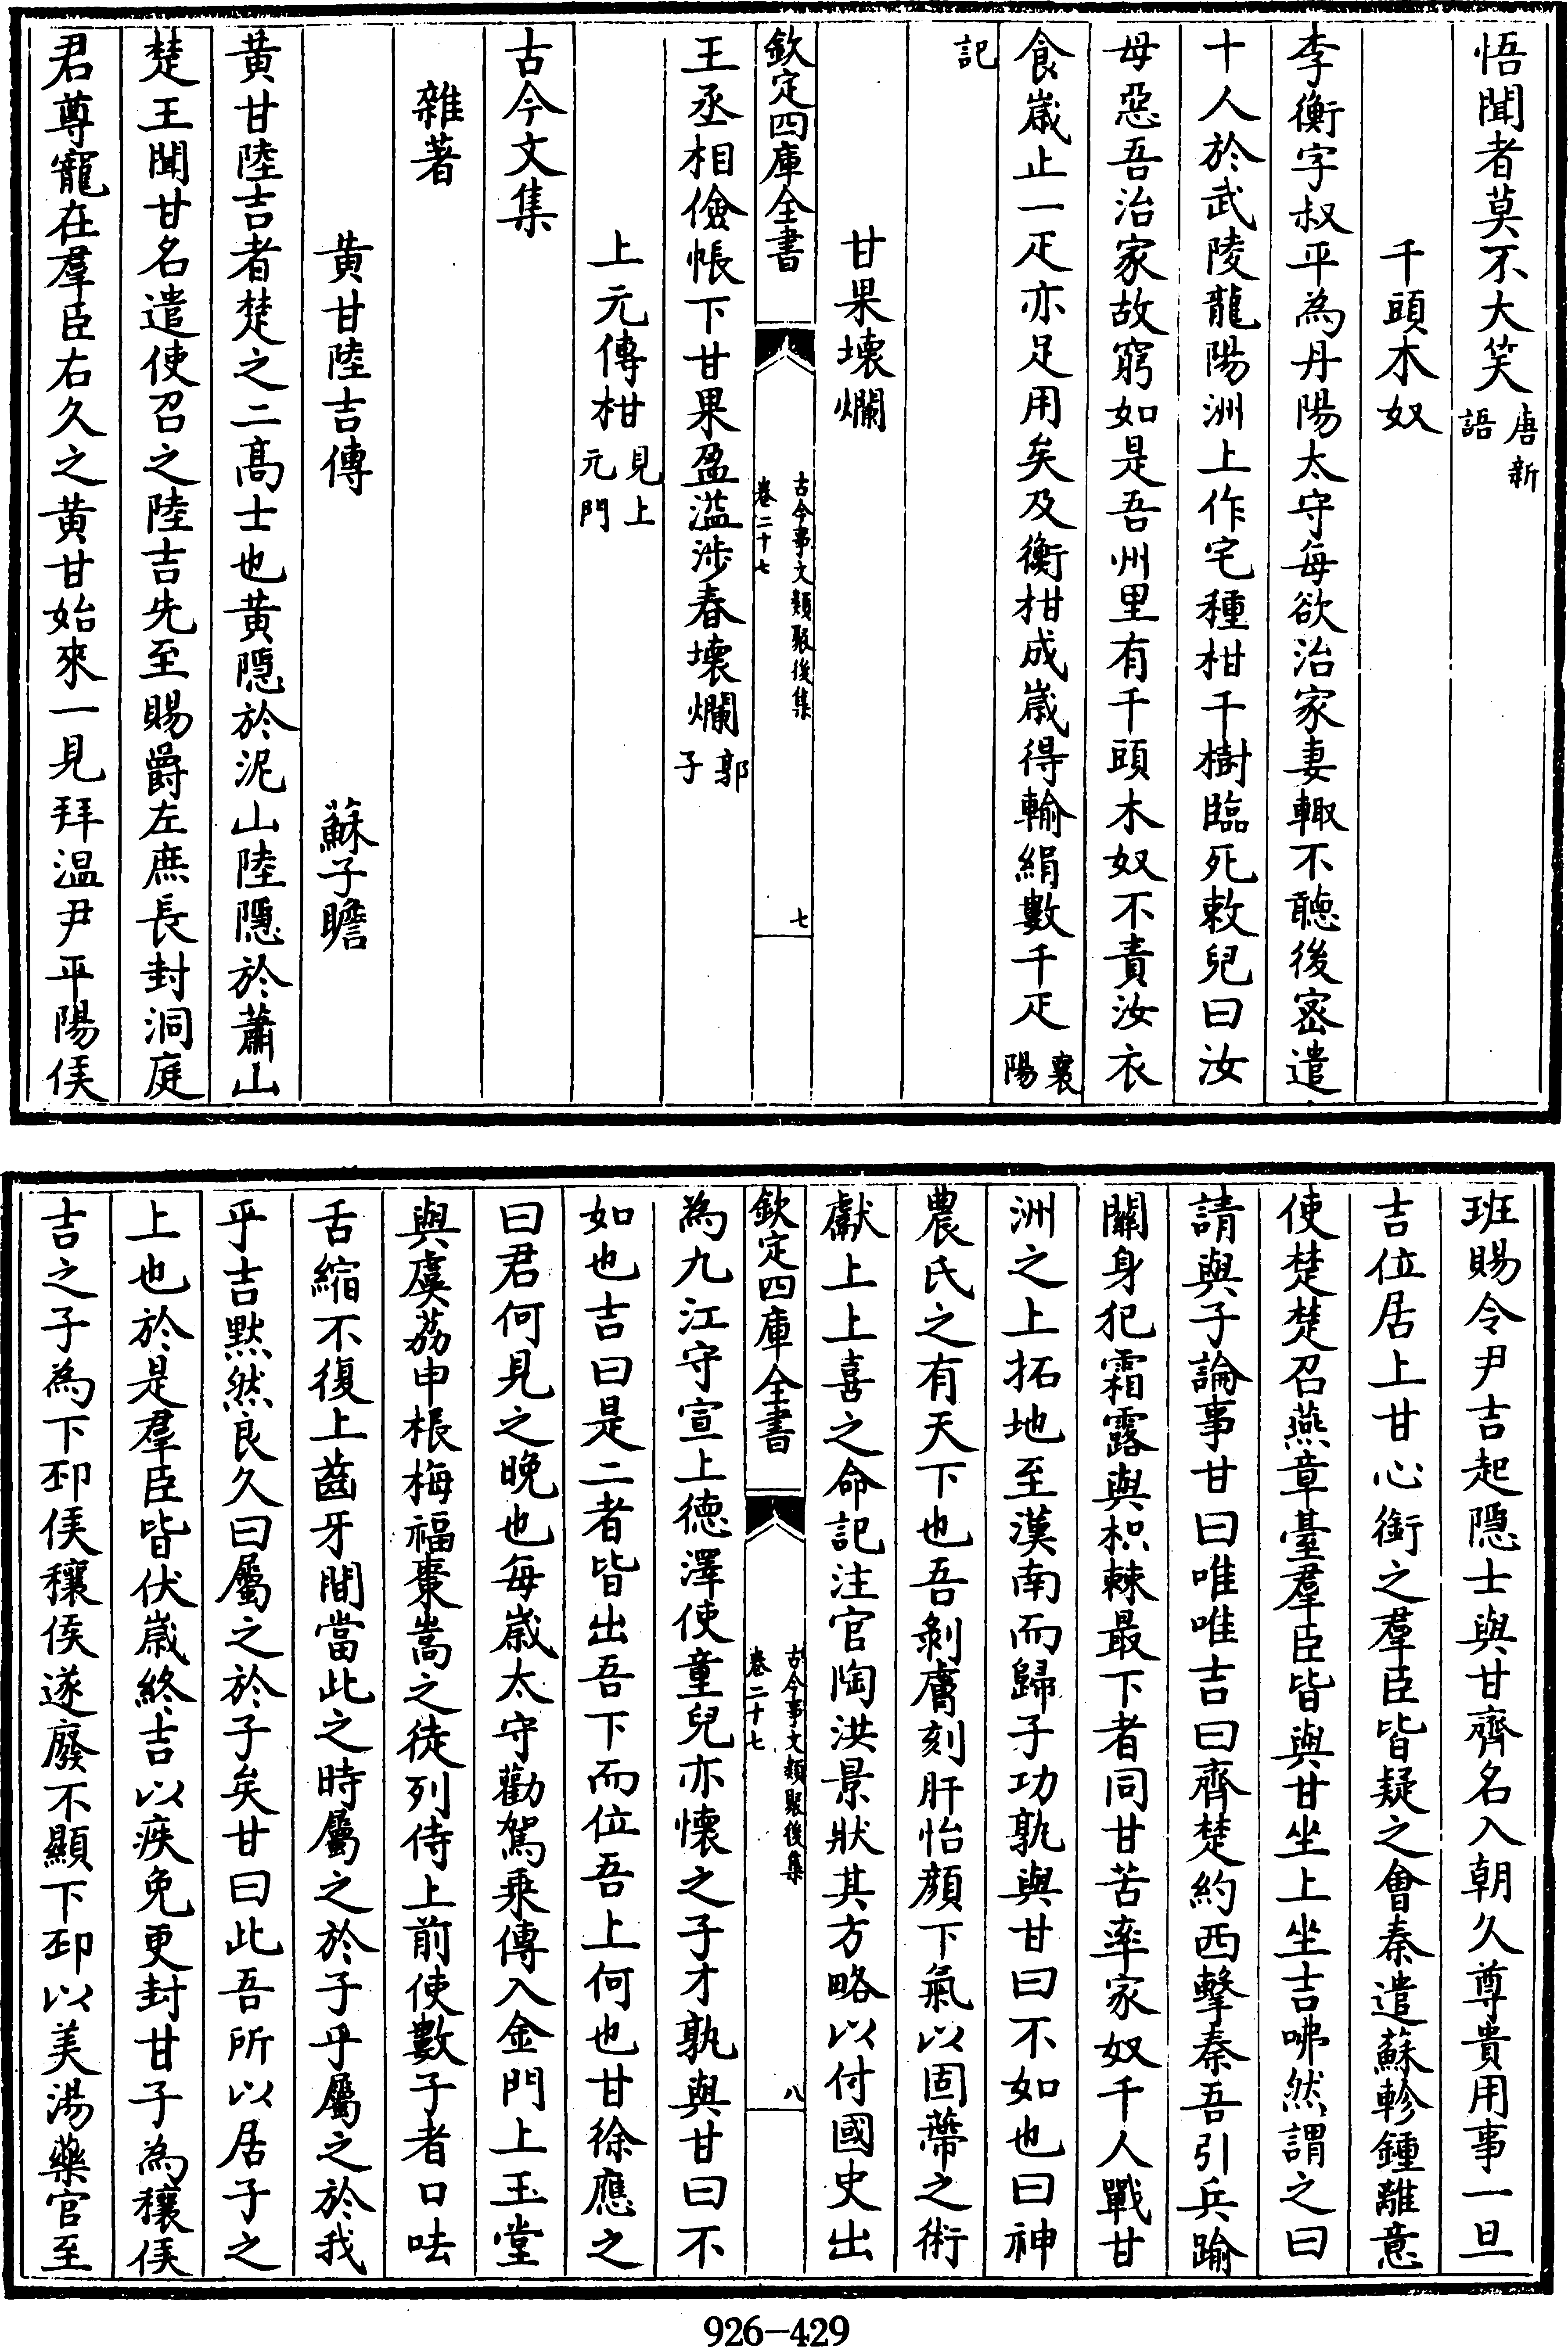 悟聞者莫不大笑唐新語
千頭木奴
李衡字叔平為丹陽太守每欲治家妻輙不聽後密遣
十人於武陵龍陽洲上作宅種柑千樹臨死敕兒曰汝
母惡吾治家故窮如是吾州里有千頭木奴不責汝衣
食嵗止一疋亦足用矣及衡柑成嵗得輸絹數千疋襄陽
記
甘果壞爛
欽定四庫全書
古今事文類聚後集
卷二十七
七
王丞相儉帳下甘果盈溢涉春壞爛郭子
上元傳柑見上元門
古今文集
雜著
黃甘陸吉傳 蘇子瞻
黃甘陸吉者楚之二髙士也黃隱於泥山陸隱於蕭山
楚王聞甘名遣使召之陸吉先至賜爵左庶長封洞庭
君尊寵在羣臣右久之黃甘始來一見拜温尹平陽侯
班賜令尹吉起隱士與甘齊名入朝久尊貴用事一旦
吉位居上甘心銜之羣臣皆疑之會秦遣蘇軫鍾離意
使楚楚召燕章臺羣臣皆與甘坐上坐吉咈然謂之曰
請與子論事甘曰唯唯吉曰齊楚約西擊秦吾引兵踰
關身犯霜露與枳棘最下者同甘苦率家奴千人戰甘
洲之上拓地至漢南而歸子功孰與甘曰不如也曰神
農氏之有天下也吾剝膚刻肝怡顔下氣以固蔕之術
獻上上喜之命記注官陶洪景狀其方略以付國史出
欽定四庫全書
古今事文類聚後集
卷二十七
八
為九江守宣上德澤使童兒亦懐之子才孰與甘曰不
如也吉曰是二者皆出吾下而位吾上何也甘徐應之
曰君何見之晚也每嵗太守勸駕乘傳入金門上玉堂
與虞荔申棖梅福棗嵩之徒列侍上前使數子者口呿
舌縮不復上齒牙間當此之時屬之於子乎屬之於我
乎吉黙然良久曰屬之於子矣甘曰此吾所以居子之
上也於是羣臣皆伏嵗終吉以疾免更封甘子為穰侯
吉之子為下邳侯穰侯遂廢不顯下邳以美湯藥官至
926-429